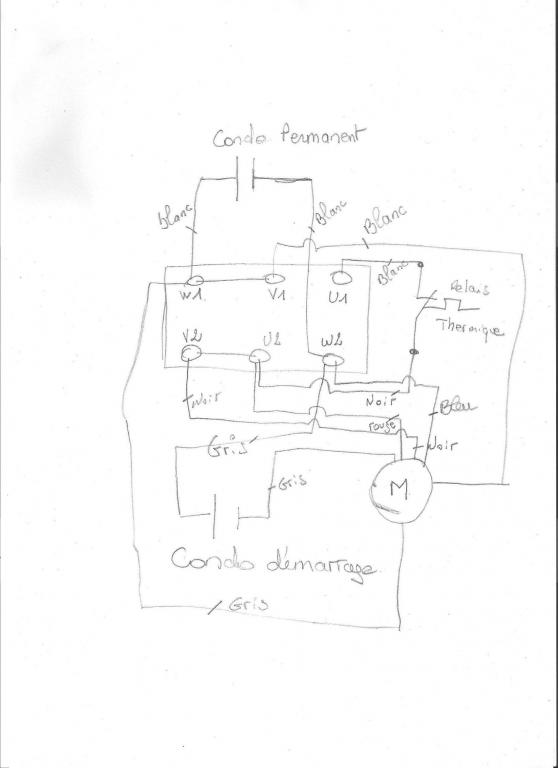 Condo Permanent
blanc
Blanc
Blanc
Blanc
W1
V1
U1
Relais
Thermique
V2
U2
W2
Noir
Noir
Bleu
rouge
Noir
Gris
Gris
M
Condo démarrage
Gris